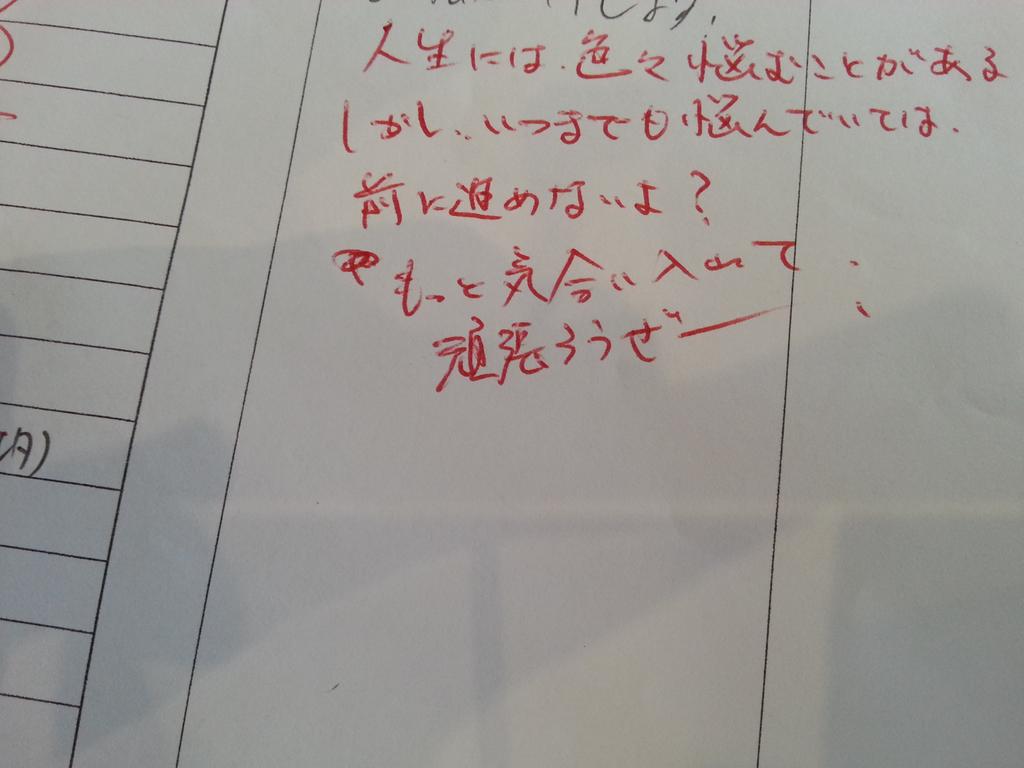 します。
人生には、色々悩むことがある
しかし、いつまでも悩んでいては、
前に進めないよ?
もっと気合い入れて
頑張ろうぜー